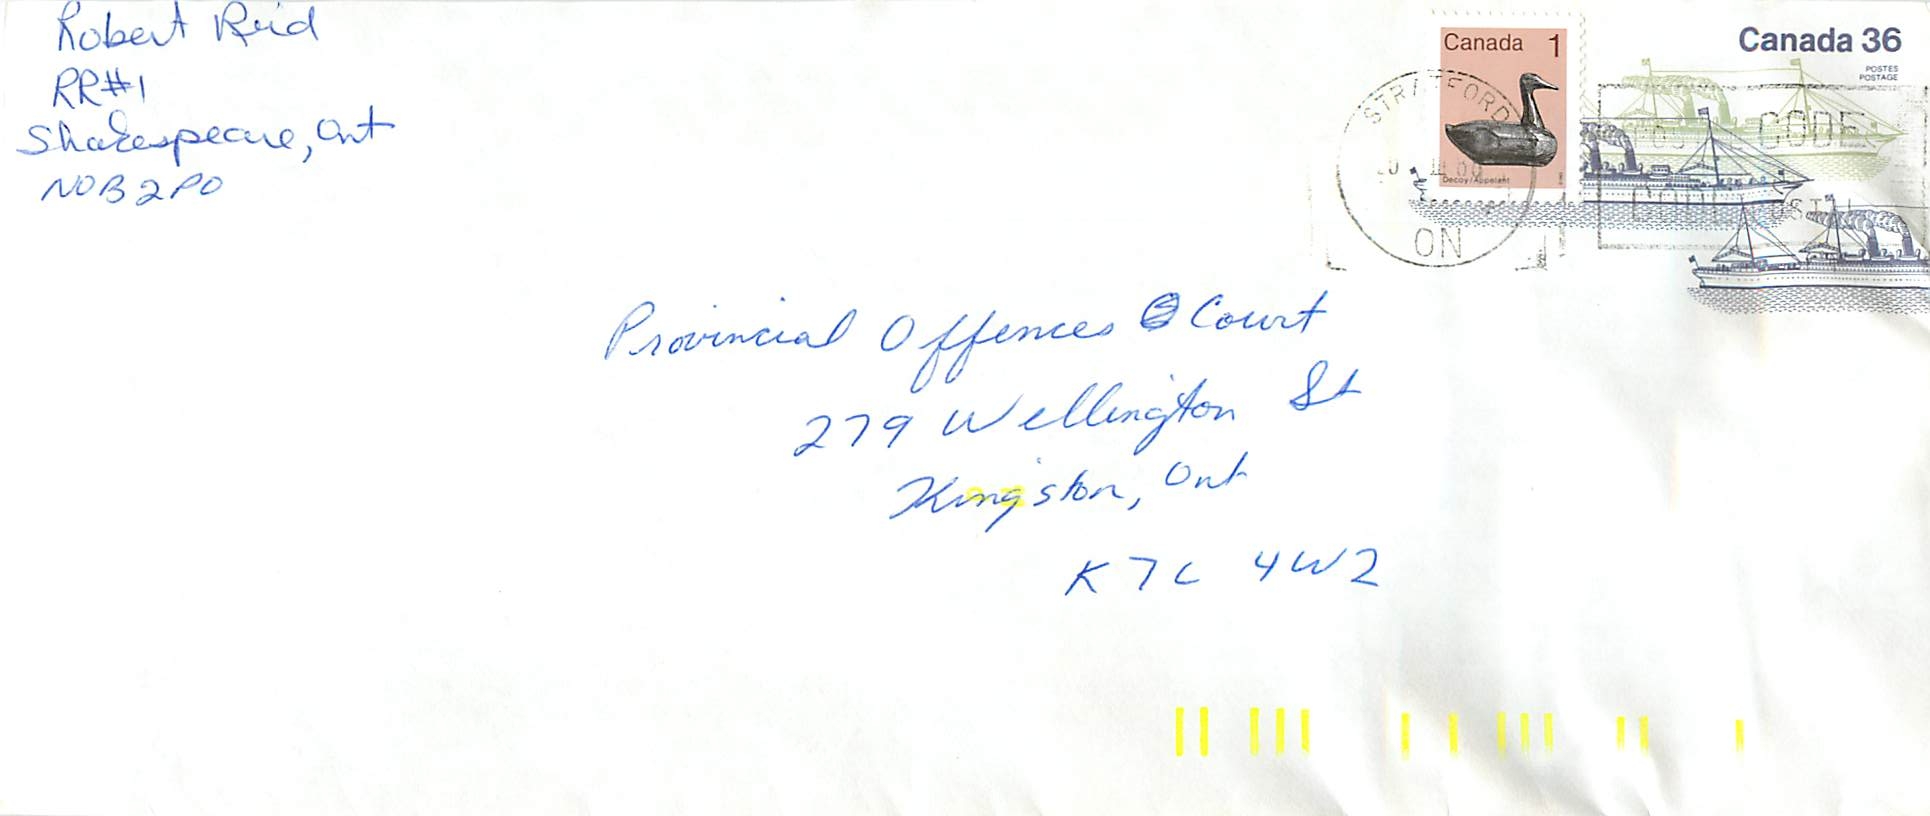 Robert Reid
RR#1
Shakespeare, Ont
N0B 2P0
Canada 1
Decoy/Appelant
Canada 36
POSTES
POSTAGE
STRATFORD
ON
CODE
Provincial Offences Court
279 Wellington St
Kingston, Ont
K7L 4W2